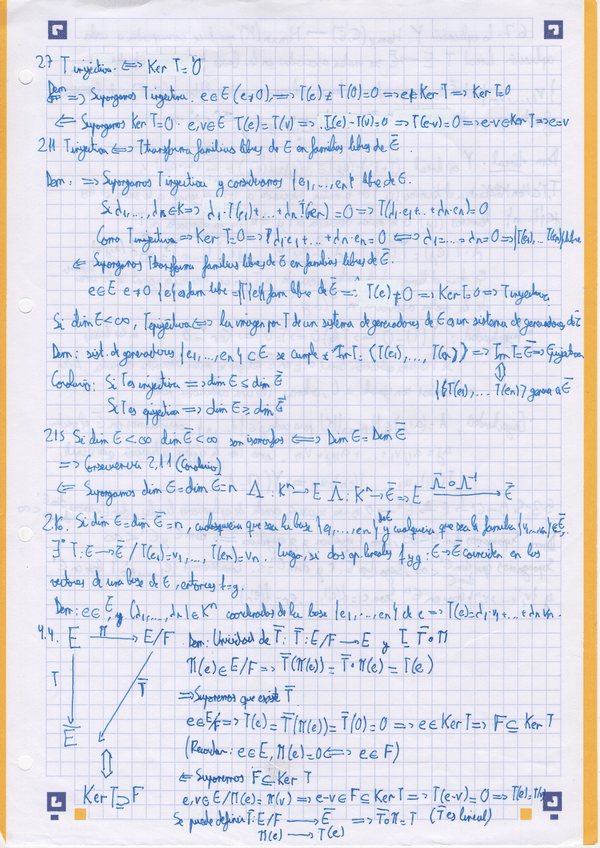 2.7 T inyectiva. ⟺ Ker T = 0
Dem: ⟹ Supongamos T inyectiva. e∈E (e≠0), ⟹ T(e) ≠ T(0)=0 ⟹ e∉Ker T ⟹ Ker T=0
⟸ Supongamos Ker T=0. e,v∈E T(e)=T(v) ⟹ T(e)-T(v)=0 ⟹ T(e-v)=0 ⟹ e-v∈Ker T ⟹ e=v
2.11 T inyectiva ⟺ T transforma familias libres de E en familias libres de Ē.
Dem: ⟹ Supongamos T inyectiva y consideramos {e₁,...,en} libre de E.
Si d₁,..., dn∈K ⟹ d₁·T(e₁)+...+dn T(en) = 0 ⟹ T(d₁·e₁+...+dn·en)=0
Como T inyectiva ⟹ Ker T=0 ⟹ d₁e₁+...+dn·en=0 ⟺ d₁=...=dn=0 ⟹ {T(e₁),...T(en)} libre
⟸ Supongamos T transforma familias libres de E en familias libres de Ē.
e∈E e≠0 {e} es fam libre ⟹ {T(e)} fam libre de Ē ⟹ T(e)≠0 ⟹ Ker T=0 ⟹ T inyectiva
Si dim E<∞, T epiyectiva ⟺ la imagen por T de un sistema de generadores de E es un sistema de generadores de Ē
Dem: sist. de generadores {e₁,...,en} ⊂ E se cumple Im T = ⟨T(e₁),..., T(en)⟩ ⟹ Im T=Ē ⟹ Epiyectiva
⇕
Corolario: Si T es inyectiva ⟹ dim E ≤ dim Ē
{T(e₁),... T(en)} genera a Ē
Si T es epiyectiva ⟹ dim E ≥ dim Ē
2.15 Si dim E<∞ dim Ē<∞ son isomorfos ⟺ Dim E = Dim Ē
⟹ Consecuencia 2.11 (Corolario)
⟸ Supongamos dim E=dim Ē=n Λ : Kⁿ→E Λ̄ : Kⁿ→Ē ⟹ E Λ̄∘Λ⁻¹→ Ē
2.16. Si dim E=dim Ē=n, cualesquiera que sea la base {e₁,...,en} de E y cualquiera que sea la familia {v₁,...,vn}∈Ē,
∃ T: E→Ē / T(e₁)=v₁,..., T(en)=vn. Luego, si dos ap. lineales f y g : E→Ē coinciden en los
vectores de una base de E, entonces f=g.
Dem: e∈E, y (d₁,..., dn)∈Kⁿ coordenadas de la base {e₁,...,en} de e ⟹ T(e)=d₁·v₁+...+dn vn.
4.4. E π→ E/F Dem: Unicidad de T̄: T̄: E/F→Ē y T=T̄∘π
π(e)∈E/F ⟹ T̄(π(e))=T̄∘π(e)=T(e)
T T̄
⟹ Suponemos que existe T̄
e∈F ⟹ T(e)=T̄(π(e))=T̄(0)=0 ⟹ e∈Ker T ⟹ F⊆Ker T
Ē
(Recordar: e∈E, π(e)=0 ⟺ e∈F)
⇕
⟸ Suponemos F⊆Ker T
Ker T⊇F
e,v∈E/π(e)=π(v) ⟹ e-v∈F⊆Ker T ⟹ T(e-v)=0 ⟹ T(e)=T(v)
Se puede definir T̄: E/F→Ē ⟹ T̄∘π=T (T̄ es lineal)
π(e)→T(e)